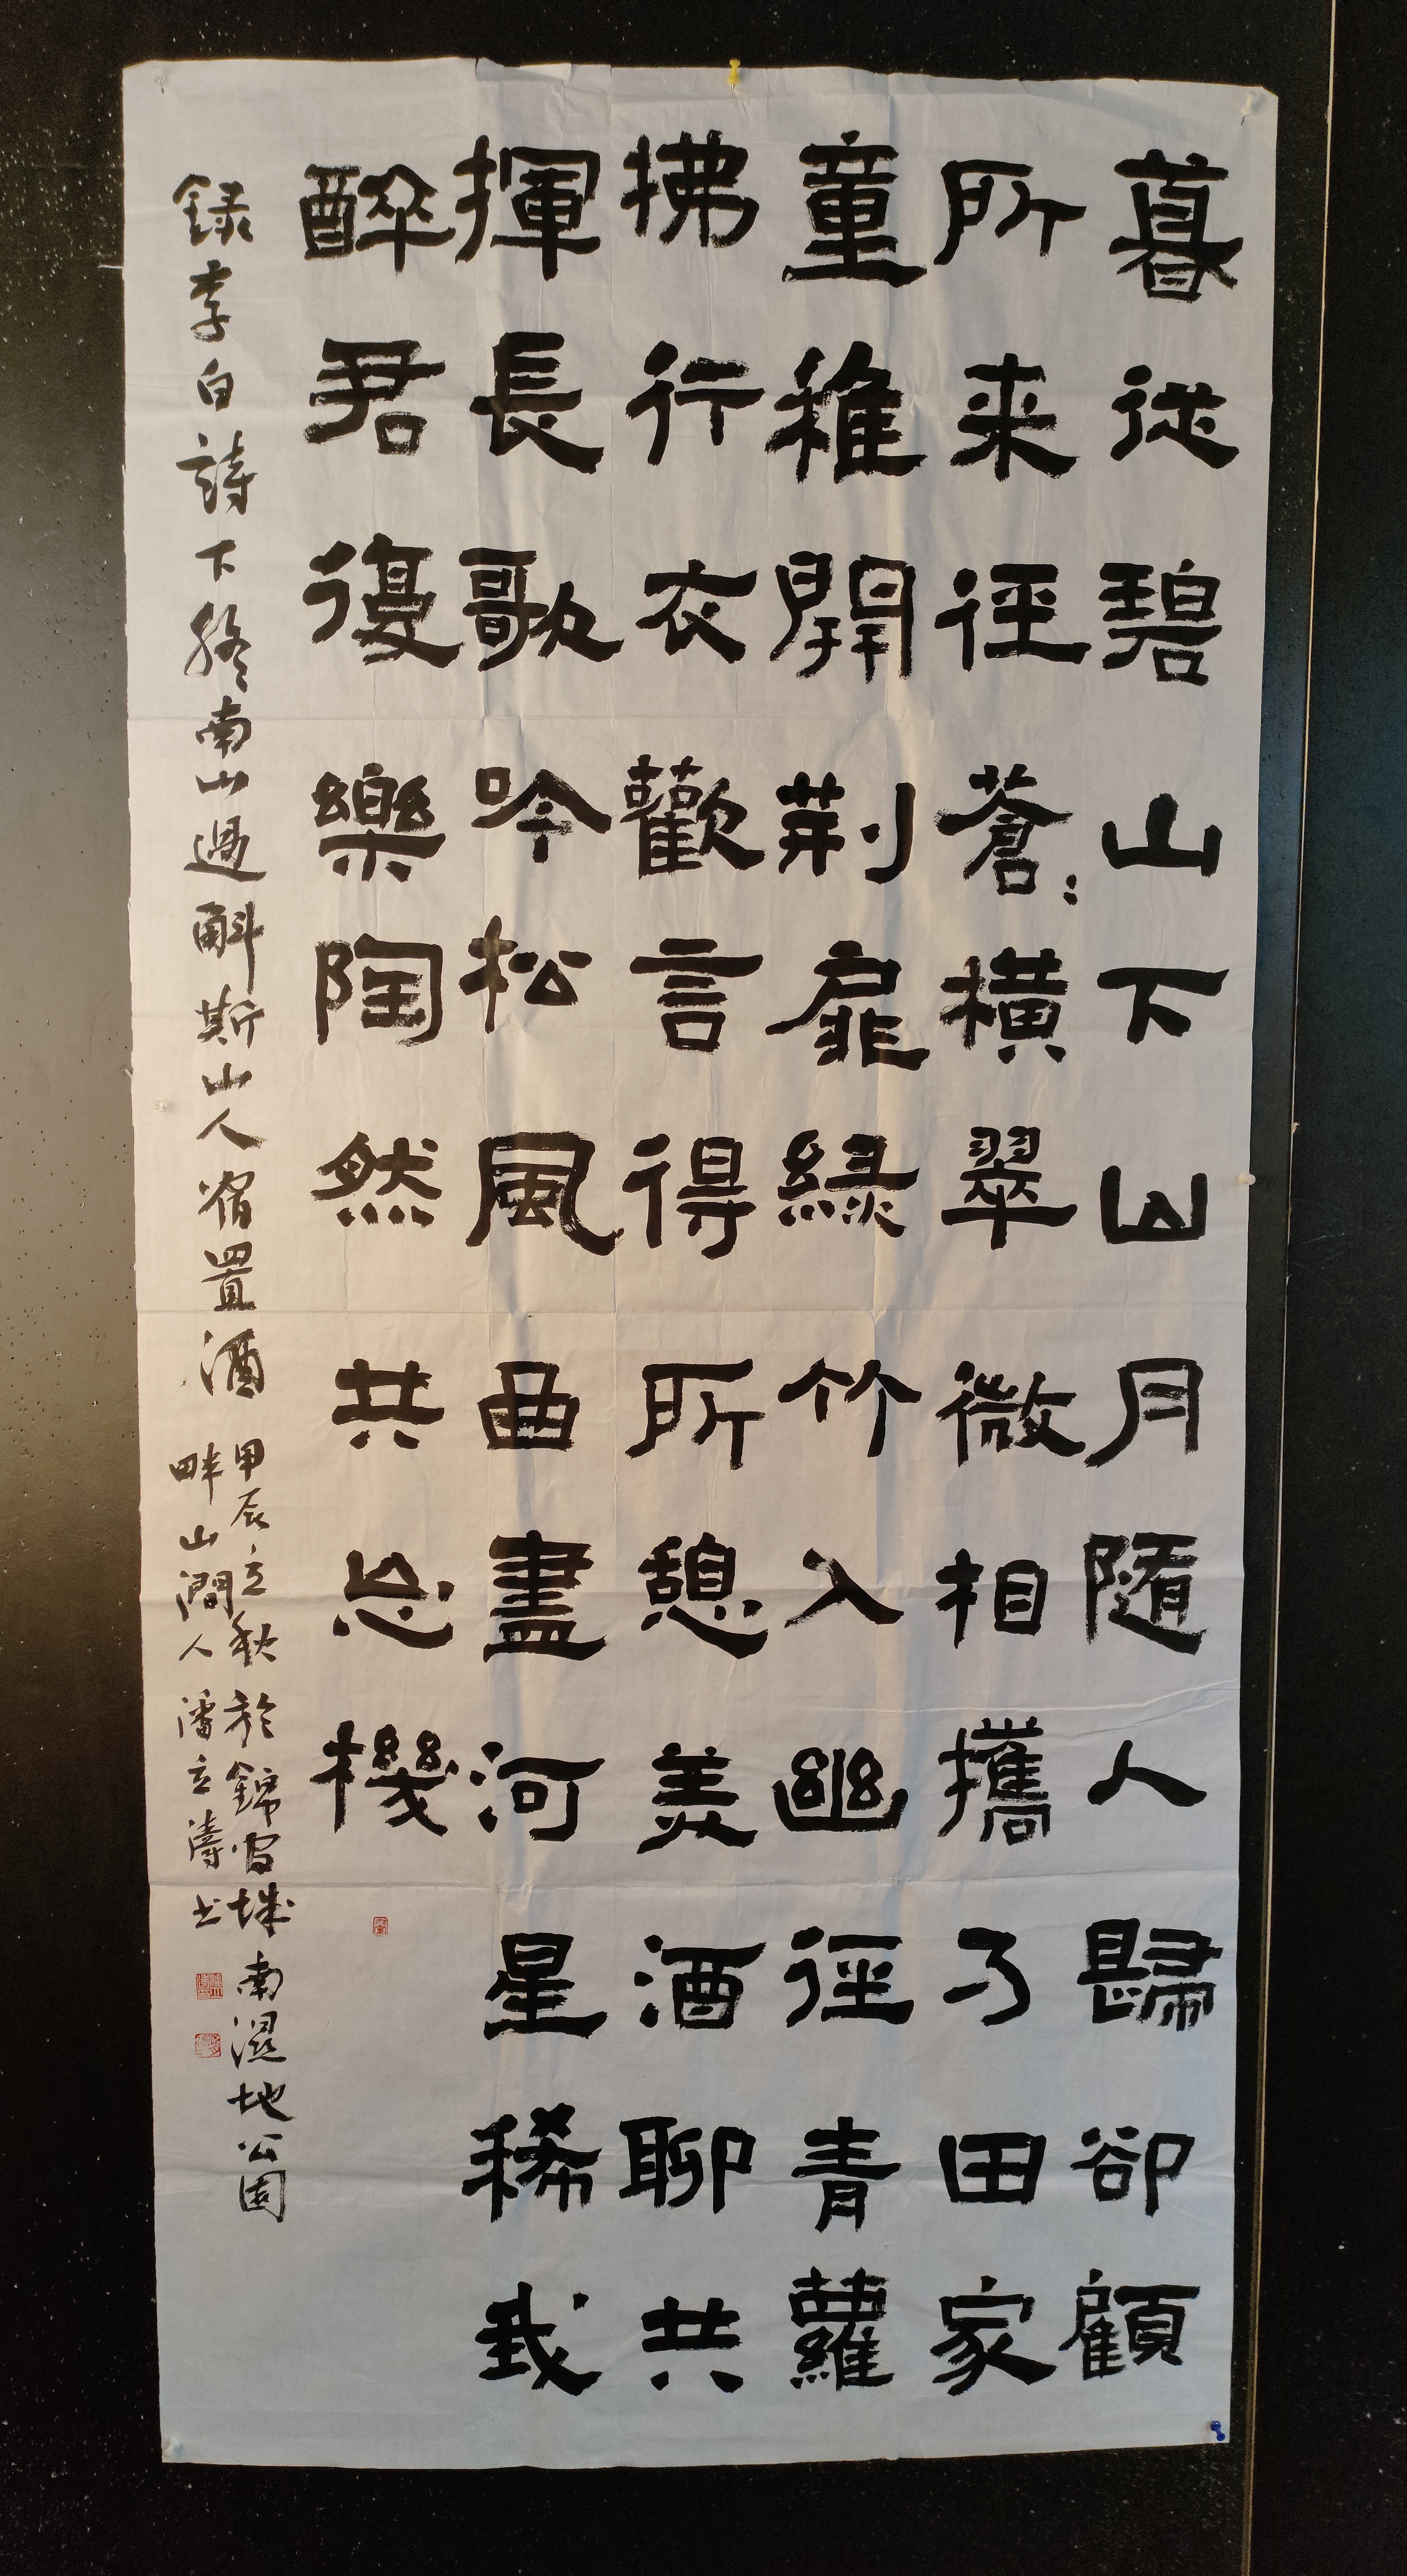 暮従碧山下山月隨人歸卻顧
所来徑蒼：橫翠微相攜乃田家
童稚開荆扉緑竹入幽徑青蘿
拂行衣歡言得所憩美酒聊共
揮長歌吟松風曲盡河星稀我
醉君復樂陶然共忘機
録李白詩下終南山過斛斯山人宿置酒
甲辰立秋於錦官城南濕地公園
畔山澗人潘立濤书